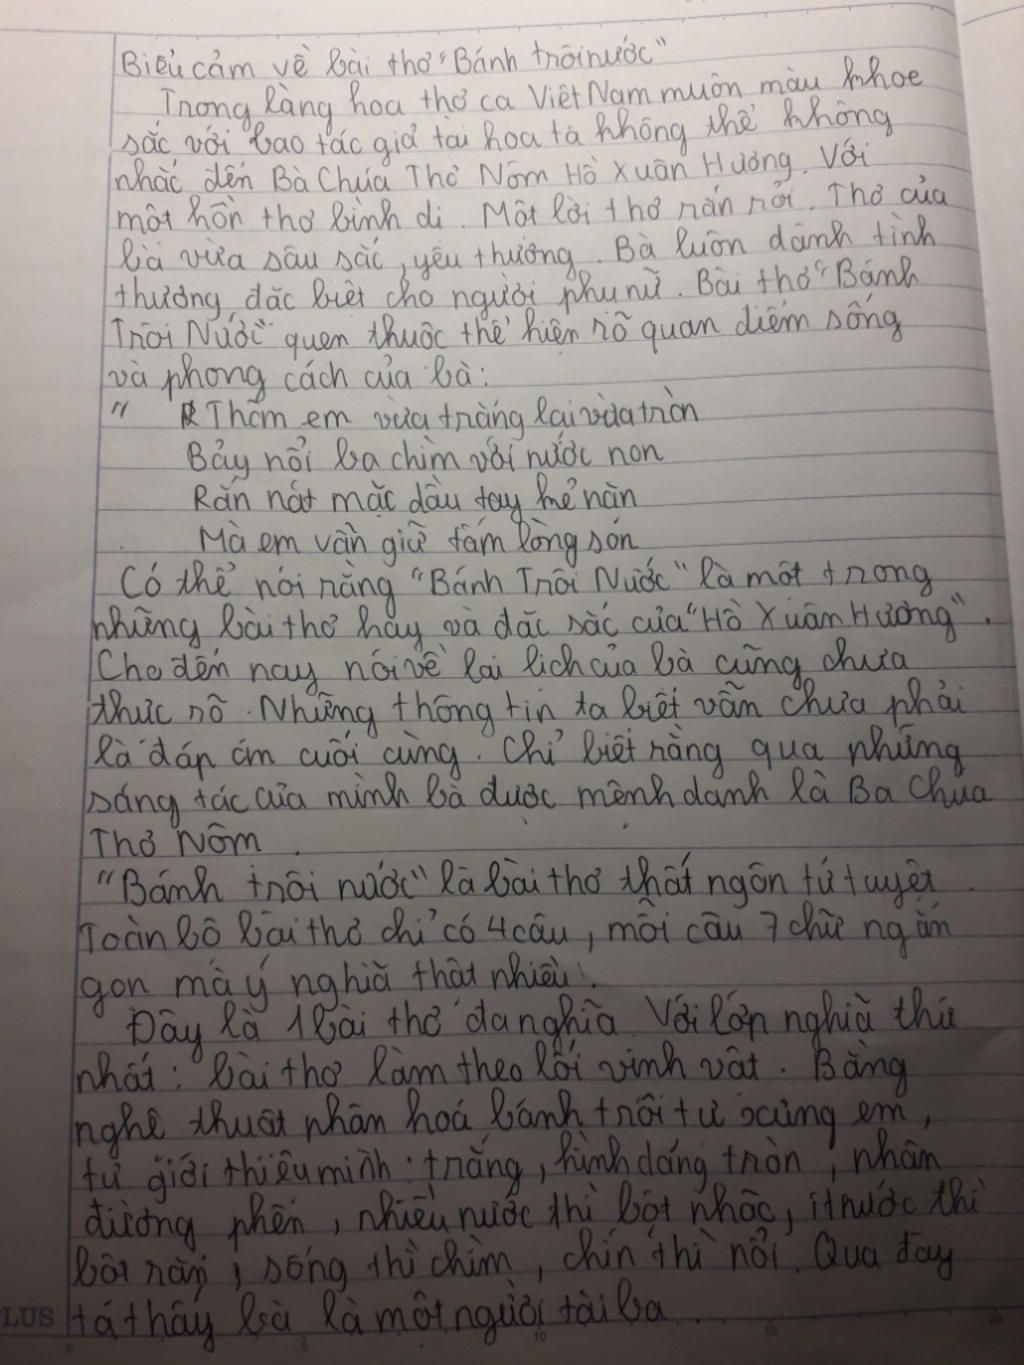 Biểu cảm về bài thơ "Bánh trôi nước"
Trong làng hoa thơ ca Việt Nam muôn màu khoe
sắc với bao tác giả tài hoa ta không thể không
nhắc đến Bà Chúa Thơ Nôm Hồ Xuân Hương. Với
một hồn thơ bình dị. Một lời thơ rắn rỏi. Thơ của
bà vừa sâu sắc, yêu thương. Bà luôn dành tình
thương đặc biệt cho người phụ nữ. Bài thơ "Bánh
Trôi Nước" quen thuộc thể hiện rõ quan điểm sống
và phong cách của bà:
" Thôm em vừa trắng lại vừa tròn
Bảy nổi ba chìm với nước non
Rắn nát mặc dầu tay kẻ nặn
Mà em vẫn giữ tấm lòng son
Có thể nói rằng "Bánh Trôi Nước" là một trong
những bài thơ hay và đặc sắc của "Hồ Xuân Hương".
Cho đến nay nói về lai lịch của bà cũng chưa
thực rõ. Những thông tin ta biết vẫn chưa phải
là đáp án cuối cùng. Chỉ biết rằng qua những
sáng tác của mình bà được mệnh danh là Ba Chúa
Thơ Nôm.
"Bánh trôi nước" là bài thơ thất ngôn tứ tuyệt.
Toàn bộ bài thơ chỉ có 4 câu, mỗi câu 7 chữ ngắn
gọn mà ý nghĩa thật nhiều.
Đây là 1 bài thơ đa nghĩa. Với lớp nghĩa thứ
nhất: bài thơ làm theo lối vịnh vật. Bằng
nghệ thuật nhân hoá bánh trôi tự xưng em,
tự giới thiệu mình: trắng, hình dáng tròn, nhân
đường phên, nhiều nước thì bột nhão, ít nước thì
bột rắn, sống thì chìm, chín thì nổi. Qua đây
ta thấy bà là một người tài ba.
PLUS
0 5 10 15 20